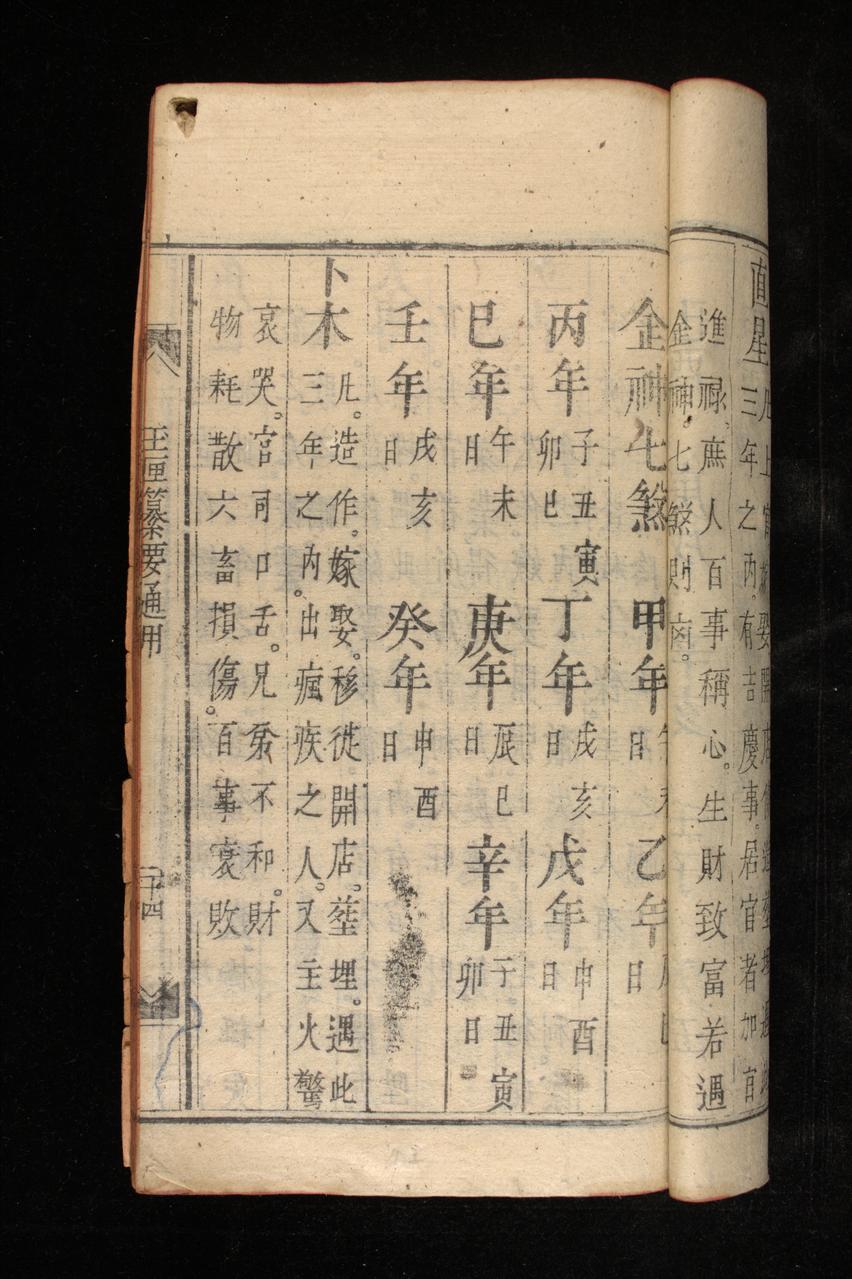 直星
凡上官嫁娶開店修造𦵏埋遇此
三年之内。有吉慶事。居官者加官
進禄、庶人百事稱心。生財致富若遇
金神七煞則凶。
金神七煞 甲年 午未日 乙年 辰巳日
丙年 子丑寅卯巳 丁年 戌亥日 戊年 申酉日
巳年 午未日 庚年 辰巳日 辛年 子丑寅卯日
壬年 戌亥日 癸年 申酉日
卜木
凡。造作。嫁娶。移徙。開店。𦵏埋。遇此
三年之内。出瘋疾之人。又主火驚
哀哭。官司口舌。兄弟不和。財
物耗散六畜損傷。百事衰敗
玉匣纂要通用
二十四